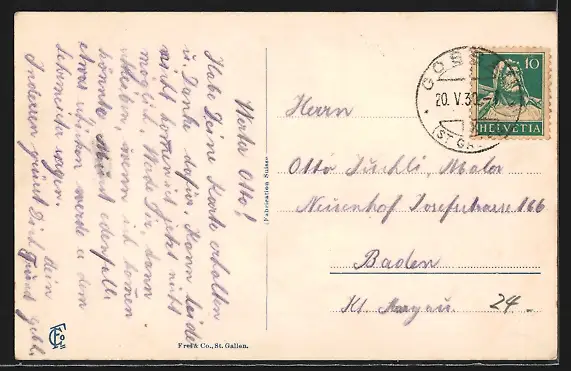 Werter Otto!
Habe Deine Karte erhalten
u. Danke dafür. Kann leider
nicht kommen ist jetzt nicht
möglich. Werde Dir dann
schreiben, wenn ich komen
könnte. ebenfalls
etwas werde a dem
Lebensicher sagen.
Indessen grüsst Dich dein
Freund
Fabrication Suisse
Frei & Co., St. Gallen.
GOSS
20. V. 30.
(ST. GA
10
HELVETIA
Herrn
Otto Füchsli, Maler
Neuenhof Josefstrasse 166
Baden
Kt. Aargau.
24.-